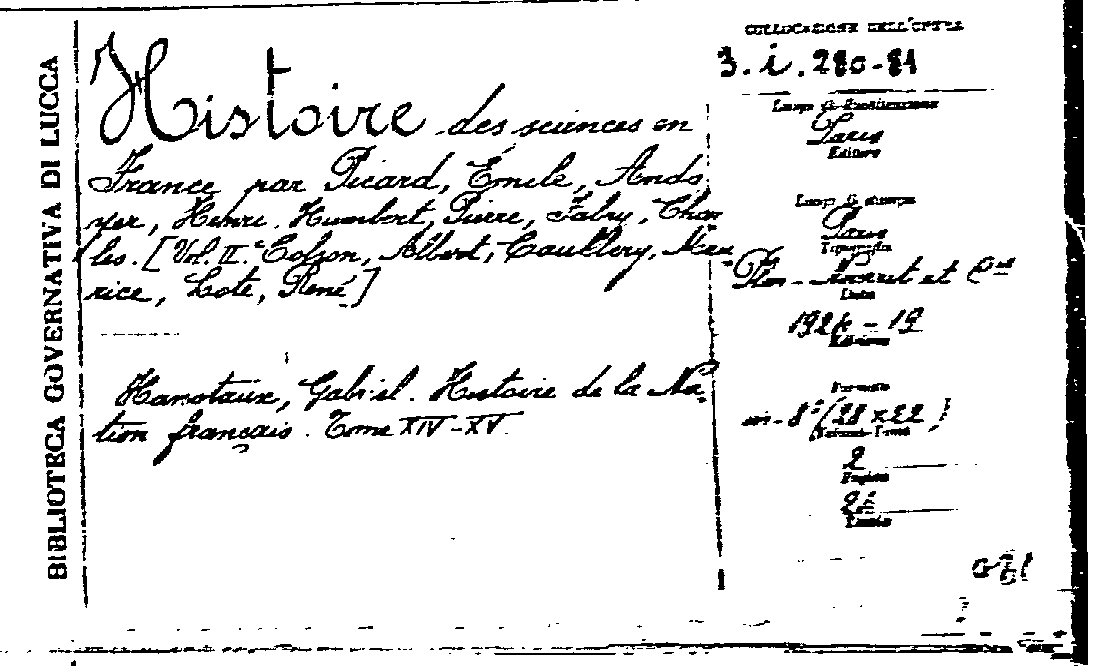 BIBLIOTECA GOVERNATIVA DI LUCCA
Histoire des sciences en
France par Picard, Émile, Ando
yer, Henri. Humbert, Pierre, Fabry, Char
les. [Vol. II.º Colson, Albert, Caullery, Mau
rice, Lote, René]
Hanotaux, Gabriel. Histoire de la Na-
tion français. Tome XIV-XV
COLLOCAZIONE DELL'OPERA
3. i. 280-81
Luogo di Pubblicazione
Paris
Editore
Luogo di stampa
Paris
Tipografia
Plon-Nourret et Cie
Data
192 - 19
Edizione
Formato
in-8º (28x22)
2
Pagine